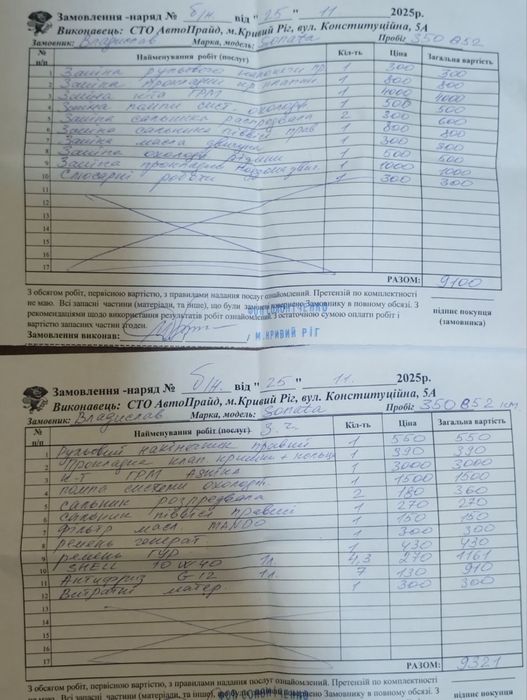 Замовлення -наряд № б/н від " 25 " 11 2025р.
Виконавець: СТО АвтоПрайд, м.Кривий Ріг, вул. Конституційна, 5А
Замовник: Владислав Марка, модель: Sonata Пробіг 350 852
№ п/п Найменування робіт (послуг) Кіл-ть Ціна Загальна вартість
1 Заміна рульового пр 1 300 300
2 Заміна прокладки кр клапан 1 800 800
3 Заміна к-та ГРМ 1 4000 4000
4 Заміна помпи сист. охолодж 1 500 500
5 Заміна сальника распредвала 2 300 600
6 Заміна сальника піввісі прав 1 800 800
7 Заміна масла двигуна 1 300 300
8 Заміна охолодж рідини 1 500 500
9 Заміна 1 1000 1000
10 Слюсарні роботи 1 300 300
11
12
13
14
15
16
17
РАЗОМ: 9100
З обсягом робіт, первісною вартістю, з правилами надання послуг ознайомлений. Претензій по комплектності
не маю. Всі запасні частини (матеріали, та інше), що були замінені повернено Замовнику в повному обсязі. З
рекомендаціями щодо використання результатів робіт ознайомлений. З остаточною сумою оплати робіт і
вартістю запасних частин згоден.
підпис покупця
(замовника)
Замовлення виконав:
М.КРИВИЙ РІГ
Замовлення -наряд № б/н. від " 25 " 11. 2025р.
Виконавець: СТО АвтоПрайд, м.Кривий Ріг, вул. Конституційна, 5А
Замовник: Владислав Марка, модель: Sonata Пробіг 350 852 км
№ п/п Найменування робіт (послуг) З.ч. Кіл-ть Ціна Загальна вартість
1 Рульовий накінечник правий 1 550 550
2 Прокладка клап кришки + кольца 1 390 390
3 к-т ГРМ 1 3000 3000
4 помпа системи охолодж. 1 1500 1500
5 сальник розпредвала 2 180 360
6 Сальник піввісі правий 1 270 270
7 Фільтр масл MANDO 1 150 150
8 ремень генерат 1 300 300
9 ремень ГУР 1 430 430
10 SHELL 10W40 1л. 4,3 270 1161
11 Антифриз G12 1л. 7 130 910
12 Витратні матер. 1 300 300
13
14
15
16
17
РАЗОМ: 9321
З обсягом робіт, первісною вартістю, з правилами надання послуг ознайомлений. Претензій по комплектності
не маю. Всі запасні частини (матеріали, та інше), що були замінені повернено Замовнику в повному обсязі. З
підпис покупця